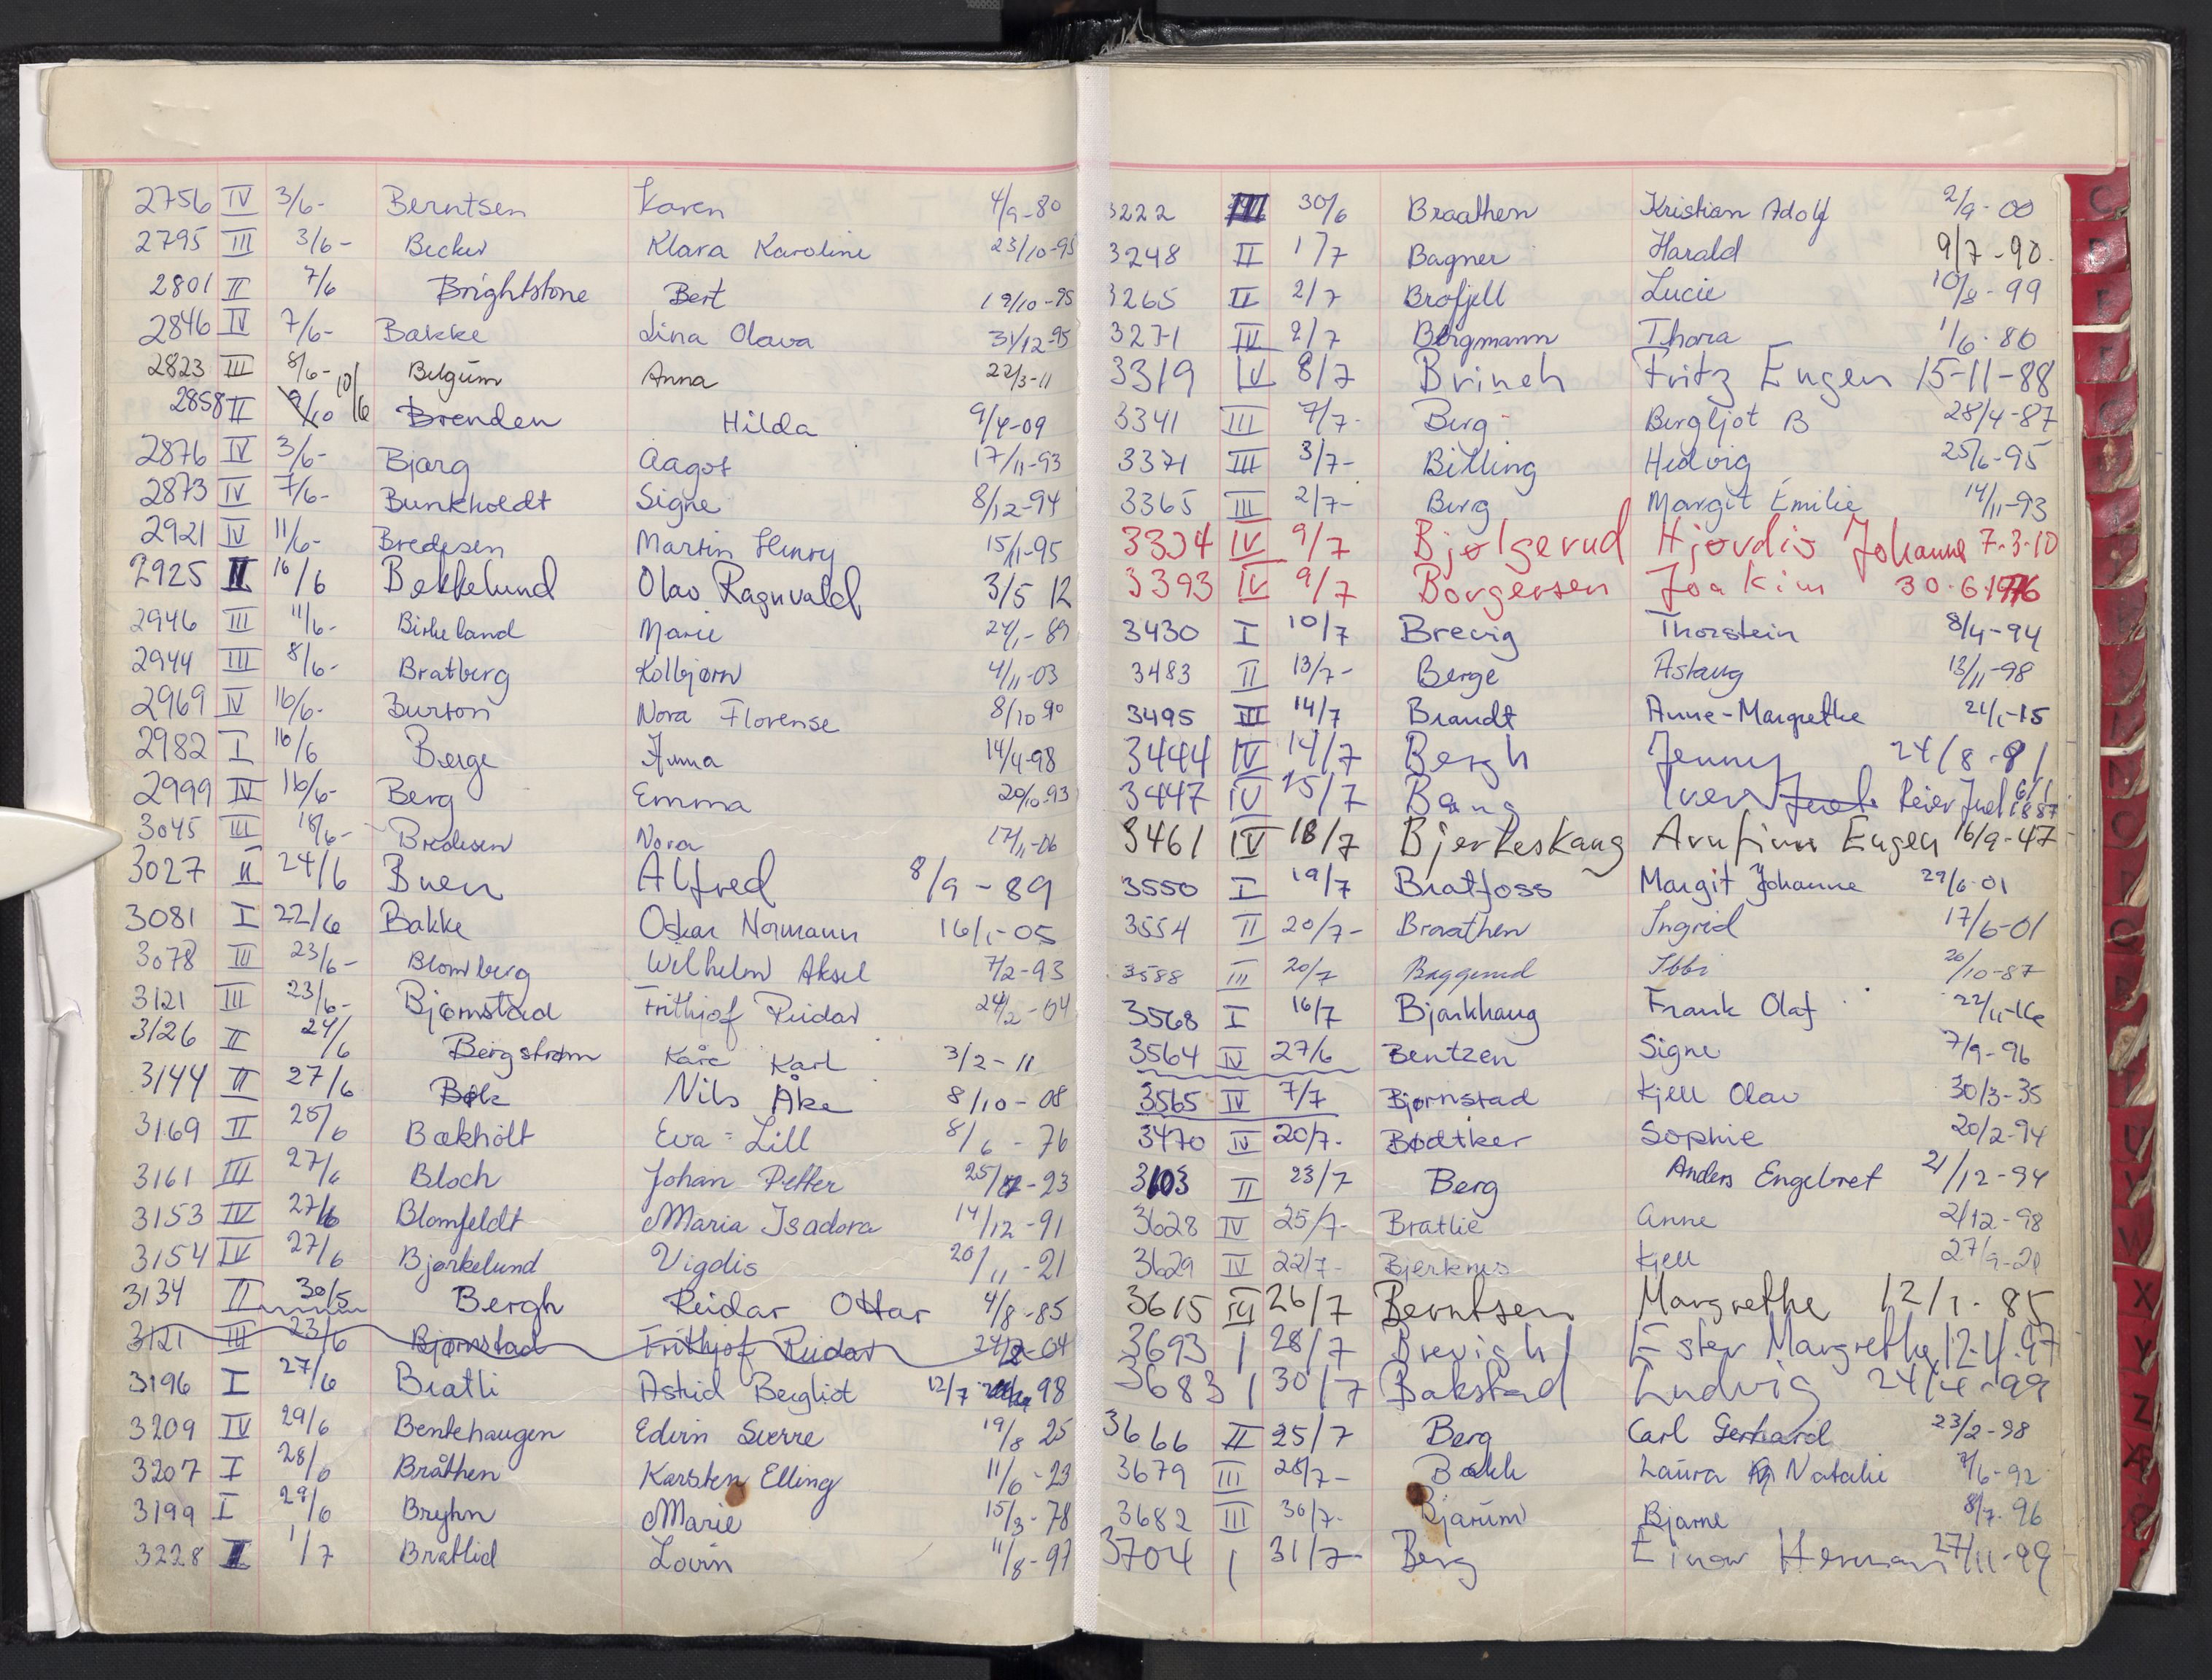 2756 IV 3/6- Berntsen Karen 4/9-80
2795 III 3/6- Becker Klara Karoline 23/10-95
2801 II 7/6 Brightstone Bert 19/10-95
2846 IV 7/6- Bakke Lina Olava 31/12-95
2823 III 8/6- Belgum Anna 22/3-11
2858 II 9/10 10/6 Brenden Hilda 9/4-09
2876 IV 3/6- Bjørg Aagot 17/11-93
2873 IV 7/6- Bunkholdt Signe 8/12-94
2921 IV 11/6- Bredesen Martin Henry 15/11-95
2925 II 16/6 Bekkelund Olav Ragnvald 3/5 12
2946 III 11/6- Birkeland Marie 24/1-89
2944 III 8/6- Bratberg Kolbjørn 4/11-03
2969 IV 16/6- Burton Nora Florense 8/10 90
2982 I 16/6 Berge Anna 14/4-98
2999 IV 16/6- Berg Emma 20/10-93
3045 III 18/6- Bredesen Nora 17/11-06
3027 II 24/6 Buen Alfred 8/9-89
3081 I 22/6 Bakke Oskar Normann 16/1-05
3078 III 23/6- Blomberg Wilhelm Aksel 7/2-93
3121 III 23/6- Bjørnstad Frithjof Reidar 24/2-04
3126 II 24/6 Bergstrøm Kåre Karl 3/2-11
3144 II 27/6 Bøk Nils Åke 8/10-08
3169 II 25/6 Bækholt Eva-Lill 8/6-76
3161 III 27/6 Bloch Johan Petter 25/ -23
3153 IV 27/6 Blomfeldt Maria Isadora 14/12-91
3154 IV 27/6 Bjørkelund Vigdis 20/11-21
3134 II 30/5 Bergh Reidar Ottar 4/8-85
3121 III 23/6 Bjørnstad Frithjof Reidar 24/2-04
3196 I 27/6 Bratli Astrid Bergliot 12/7 98
3209 IV 29/6 Bentehaugen Edvin Sverre 19/8 25
3207 I 28/6 Bråthen Karsten Elling 11/6-23
3199 I 29/6 Bryhn Marie 15/3-78
3228 I 1/7 Bratlid Lovin 11/8-97
3222 III 30/6 Braathen Kristian Adolf 2/9-00
3248 II 1/7 Bagner Harald 9/7-90.
3265 II 2/7 Brofjell Lucie 10/8-99
3271 IV 2/7 Bergmann Thora 1/6-80
3319 IV 8/7 Brinch Fritz Eugen 15-11-88
3341 III 7/7- Berg Bergljot B 28/4-87
3371 III 3/7- Billing Hedvig 25/6-95
3365 III 2/7- Berg Margit Emilie 14/11-93
3394 IV 9/7 Bjølgerud Hjørdis Johanne 7-3-10
3393 IV 9/7 Borgersen Joakim 30-6-1916
3430 I 10/7 Brevig Thorstein 8/4-94
3483 II 13/7- Berge Aslaug 13/11-98
3495 III 14/7 Brandt Anne-Margrethe 21/1-15
3444 IV 14/7 Bergh Jenny 24/8-81
3447 IV 15/7 Bang Iver Juel Reier Juel 6/1 1887
3461 IV 18/7 Bjerkeskaug Arnfinn Eugen 16/9-47
3550 I 19/7 Bratfoss Margit Johanne 29/6-01
3554 II 20/7- Braathen Ingrid 17/6-01
3588 III 20/7 Baggerud Ibbi 20/10-87
3568 I 16/7 Bjørkhaug Frank Olaf 22/11-16
3564 IV 27/6 Bentzen Signe 7/9-96
3565 IV 7/7 Bjørnstad Kjell Olav 30/3-35
3470 IV 20/7- Bødtker Sophie 20/2-94
3103 II 23/7 Berg Anders Engebret 21/12-94
3628 IV 25/7- Bratlie Anne 2/12-98
3629 IV 22/7- Bjerknes Kjell 27/9-20
3615 III 26/7 Berntsen Margrethe 12/1-85
3693 I 28/7 Brevigh Ester Margrethe 12-4-97
3683 I 30/7 Bakstad Ludvig 24/4-99
3666 II 25/7 Berg Carl Gerhard 23/2-98
3679 III 25/7- Bakk Laura Natalie 7/6-92
3682 III 30/7- Bjørum Bjarne 8/7-96
3704 I 31/7- Berg Einar Herman 27/11-99
C
X
Y
Z